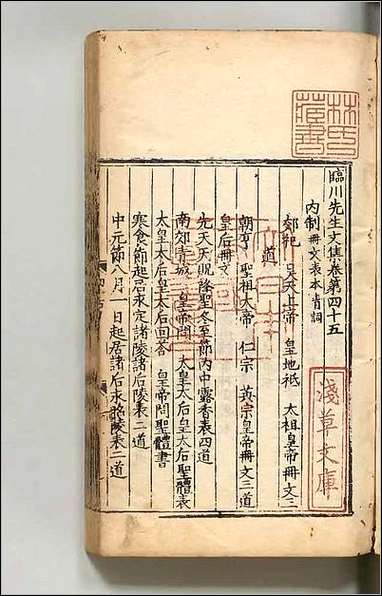 臨川先生文集卷第四十五
內制 冊文 表本 青詞
郊祀 昊天上帝 皇地祇 太祖皇帝冊文三
道
朝享 聖祖大帝 仁宗 英宗皇帝冊文三道
皇后冊文
先天天貺降聖冬至節內中露香表四道
南郊青城 皇帝問 太皇太后皇太后聖體表
太皇太后皇太后回荅 皇帝問聖體書
寒食節起居永定諸陵諸后陵表二道
中元節八月一日起居諸后永昭陵表二道
林氏藏書
淺草文庫